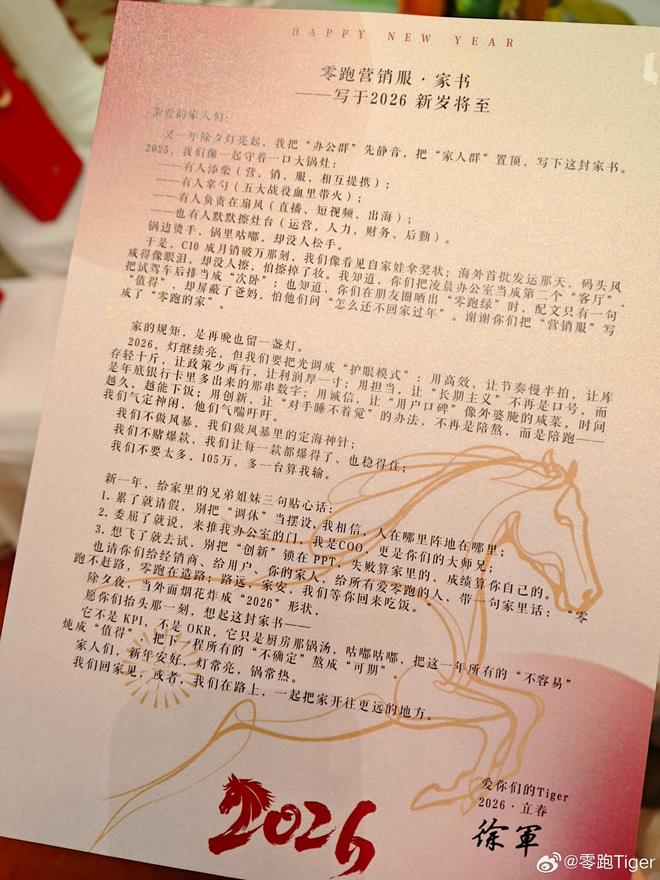 HAPPY NEW YEAR
零跑营销服·家书
——写于2026 新岁将至
亲爱的家人们:
又一年除夕灯亮起，我把“办公群”先静音，把“家人群”置顶，写下这封家书。
2025，我们像一起守着一口大锅灶:
——有人添柴（营，销，服，相互提携）;
——有人掌勺（五大战役血里带火）;
——有人负责在扇风（直播、短视频、出海）;
——也有人默默擦灶台（运营，人力，财务、后勤）。
锅边烫手，锅里咕嘟，却没人松手。
于是，C10 成月销破万那刻，我们像看见自家娃拿奖状；海外首批发运那天，码头风
咸得像眼泪，却没人擦，怕擦掉了妆。我知道，你们把凌晨办公室当成第二个“客厅”，
把试驾车后排当成“次卧”；也知道，你们在朋友圈晒出“零跑绿”时，配文只有一句
“值得”，却屏蔽了爸妈，怕他们问“怎么还不回家过年”。谢谢你们把“营销服”写
成了“零跑的家”。
家的规矩，是再晚也留一盏灯。
2026，灯继续亮，但我们要把光调成“护眼模式”：用高效，让节奏慢半拍，让库
存轻十斤，让政策少两行，让利润厚一寸；用担当，让“长期主义”不再是口号，而
是年底银行卡里多出来的那串数字；用诚信，让“用户口碑”像外婆腌的咸菜，时间
越久，越能下饭；用创新，让“对手睡不着觉”的办法，不再是陪熬，而是陪跑——
我们气定神闲，他们气喘吁吁。
我们不做风暴，我们做风暴里的定海神针；
我们不赌爆款，我们让每一款都爆得了、也稳得住；
我们不要太多，105万，多一台算我输。
新一年，给家里的兄弟姐妹三句贴心话：
1. 累了就请假，别把“调休”当摆设，我相信，人在哪里阵地在哪里；
2. 委屈了就说，来推我办公室的门，我是COO，更是你们的大师兄；
3. 想飞了就去试，别把“创新”锁在PPT，失败算家里的，成绩算你自己的。
也请你们给经销商、给用户、你的家人，给所有爱零跑的人，带一句家里话：“零
跑不赶路，零跑在造路；路远，家安，我们等你回来吃饭。”
除夕夜，当外面烟花炸成“2026”形状，
愿你们抬头那一刻，想起这封家书——
它不是 KPI，不是 OKR，它只是厨房那锅汤，咕嘟咕嘟，把这一年所有的“不容易”
炖成“值得”，把下一程所有的“不确定”熬成“可期”。
家人们，新年安好，灯常亮，锅常热。
我们回家见，或者，我们在路上，一起把家开往更远的地方。
爱你们的Tiger
2026·立春
徐军
2026
@零跑Tiger